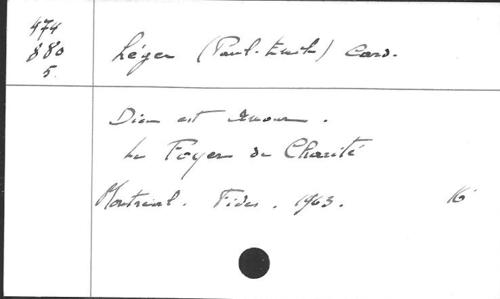 474
880
5.
Léger (Paul-Emile) Card.
Dieu est Amour.
Le Foyer de Charité
Montréal. Fides. 1963. 16